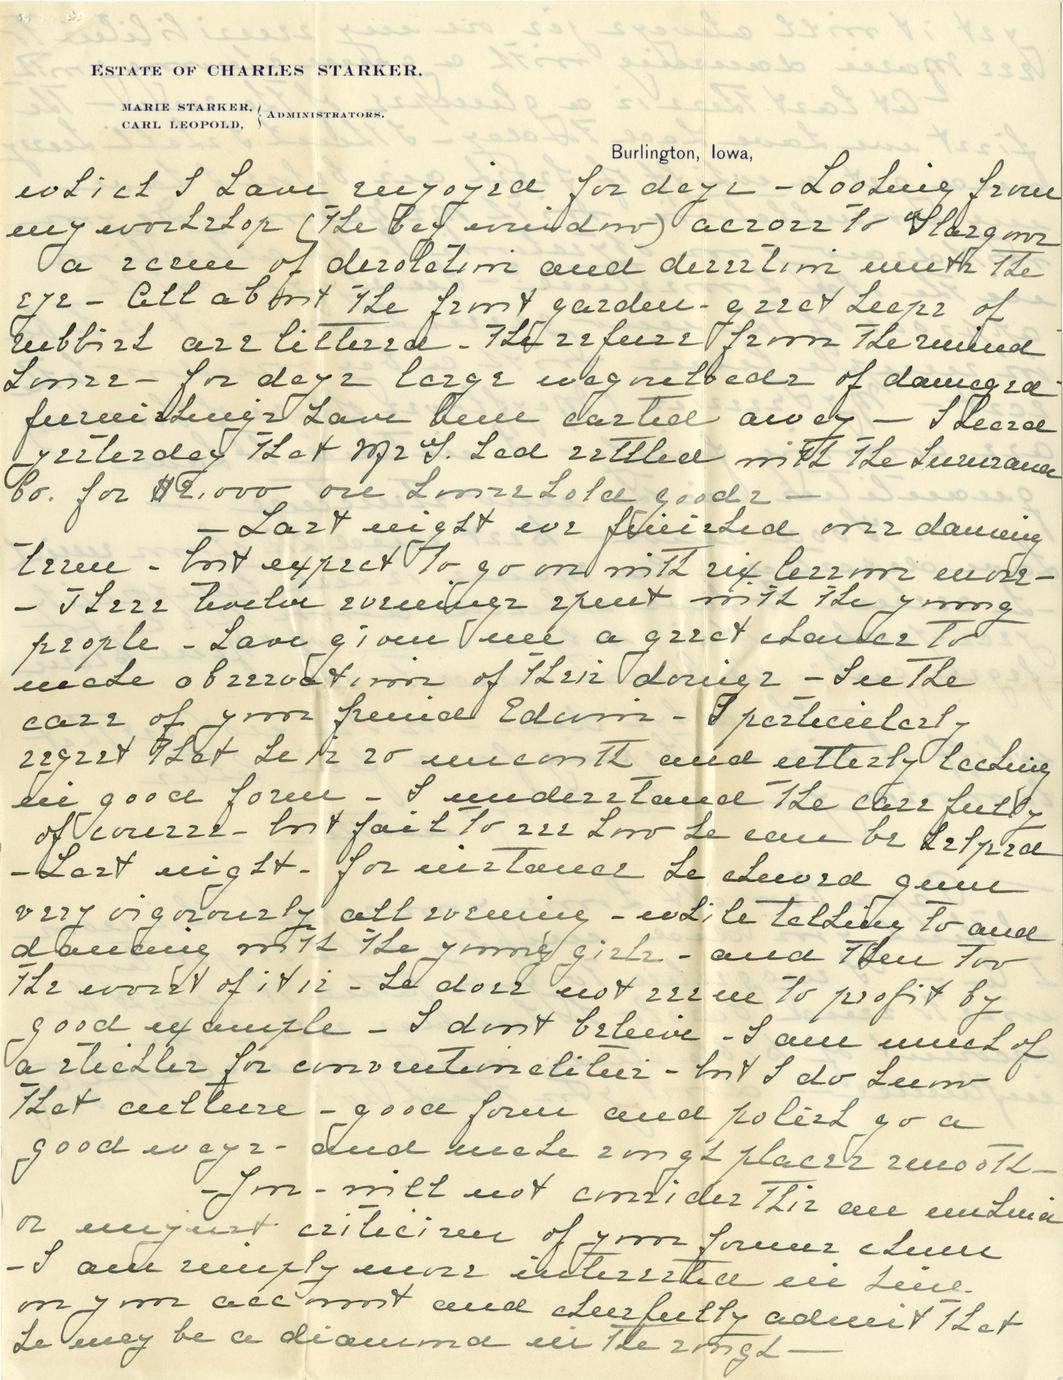 ESTATE OF CHARLES STARKER.
MARIE STARKER, CARL LEOPOLD, } ADMINISTRATORS.
Burlington, Iowa,
which I have enjoyed for days - Looking from
my workshop (the bay window) across to Starguns
a scene of desolation and desertion meets the
eye - All about the front garden - great heaps of
rubbish are littered - The refuse from the ruined
house - for days large wagonloads of damaged
furnishings have been carted away - I heard
yesterday that Mr S. had settled with the Insurance
Co. for $2,000 on household goods -
- Last night we finished our dancing
term - but expect to go on with six lessons more -
- These twelve evenings spent with the young
people - have given me a great chance to
make observations of their doings - In the
case of your friend Edwin - I particularly
regret that he is so uncouth and utterly lacking
in good form - I understand the case fully
of course - but fail to see how he can be helped
- Last night - for instance he chewed gum
very vigorously all evening - while talking to and
dancing with the young girls - and then too
the worst of it is - he does not seem to profit by
good example - I don't believe - I am much of
a stickler for conventionalities - but I do know
that culture - good form and polish go a
good ways - and make rough places smooth -
- You - will not consider this an unkind
or unjust criticism of your former chum
- I am simply more interested in him
on your account and cheerfully admit that
he may be a diamond in the rough -